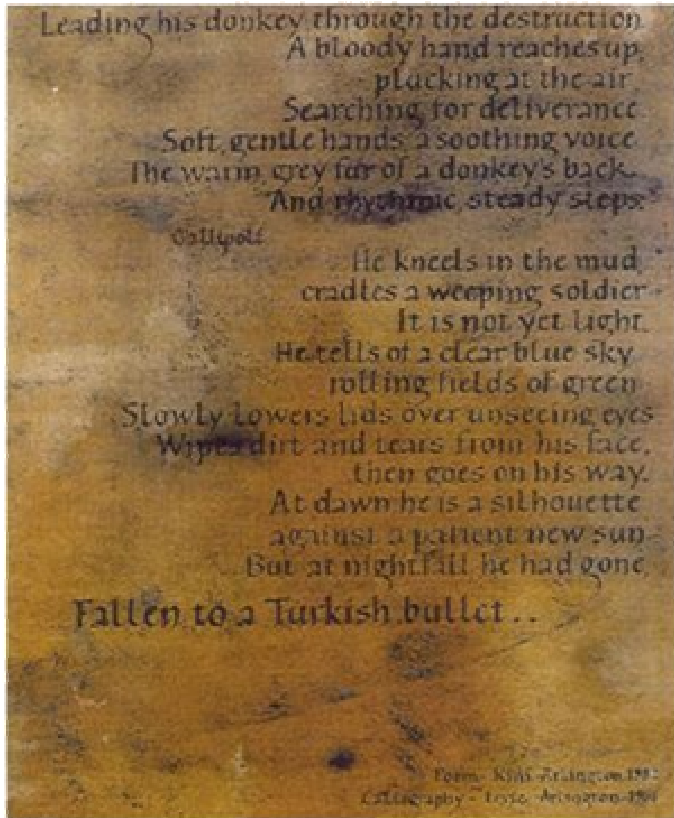 Leading his donkey through the destruction
A bloody hand reaches up,
plucking at the air,
Searching for deliverance
Soft, gentle hands, a soothing voice
The warm, grey fur of a donkey's back.
And rhythmic, steady steps.
Gallipoli
He kneels in the mud,
cradles a weeping soldier
It is not yet light.
He tells of a clear blue sky
rolling fields of green
Slowly lowers lids over unseeing eyes
Wipes dirt and tears from his face,
then goes on his way.
At dawn he is a silhouette
against a patient new sun
But at nightfall he had gone,
Fallen to a Turkish bullet..
Poem - Arlington
Calligraphy - Arlington